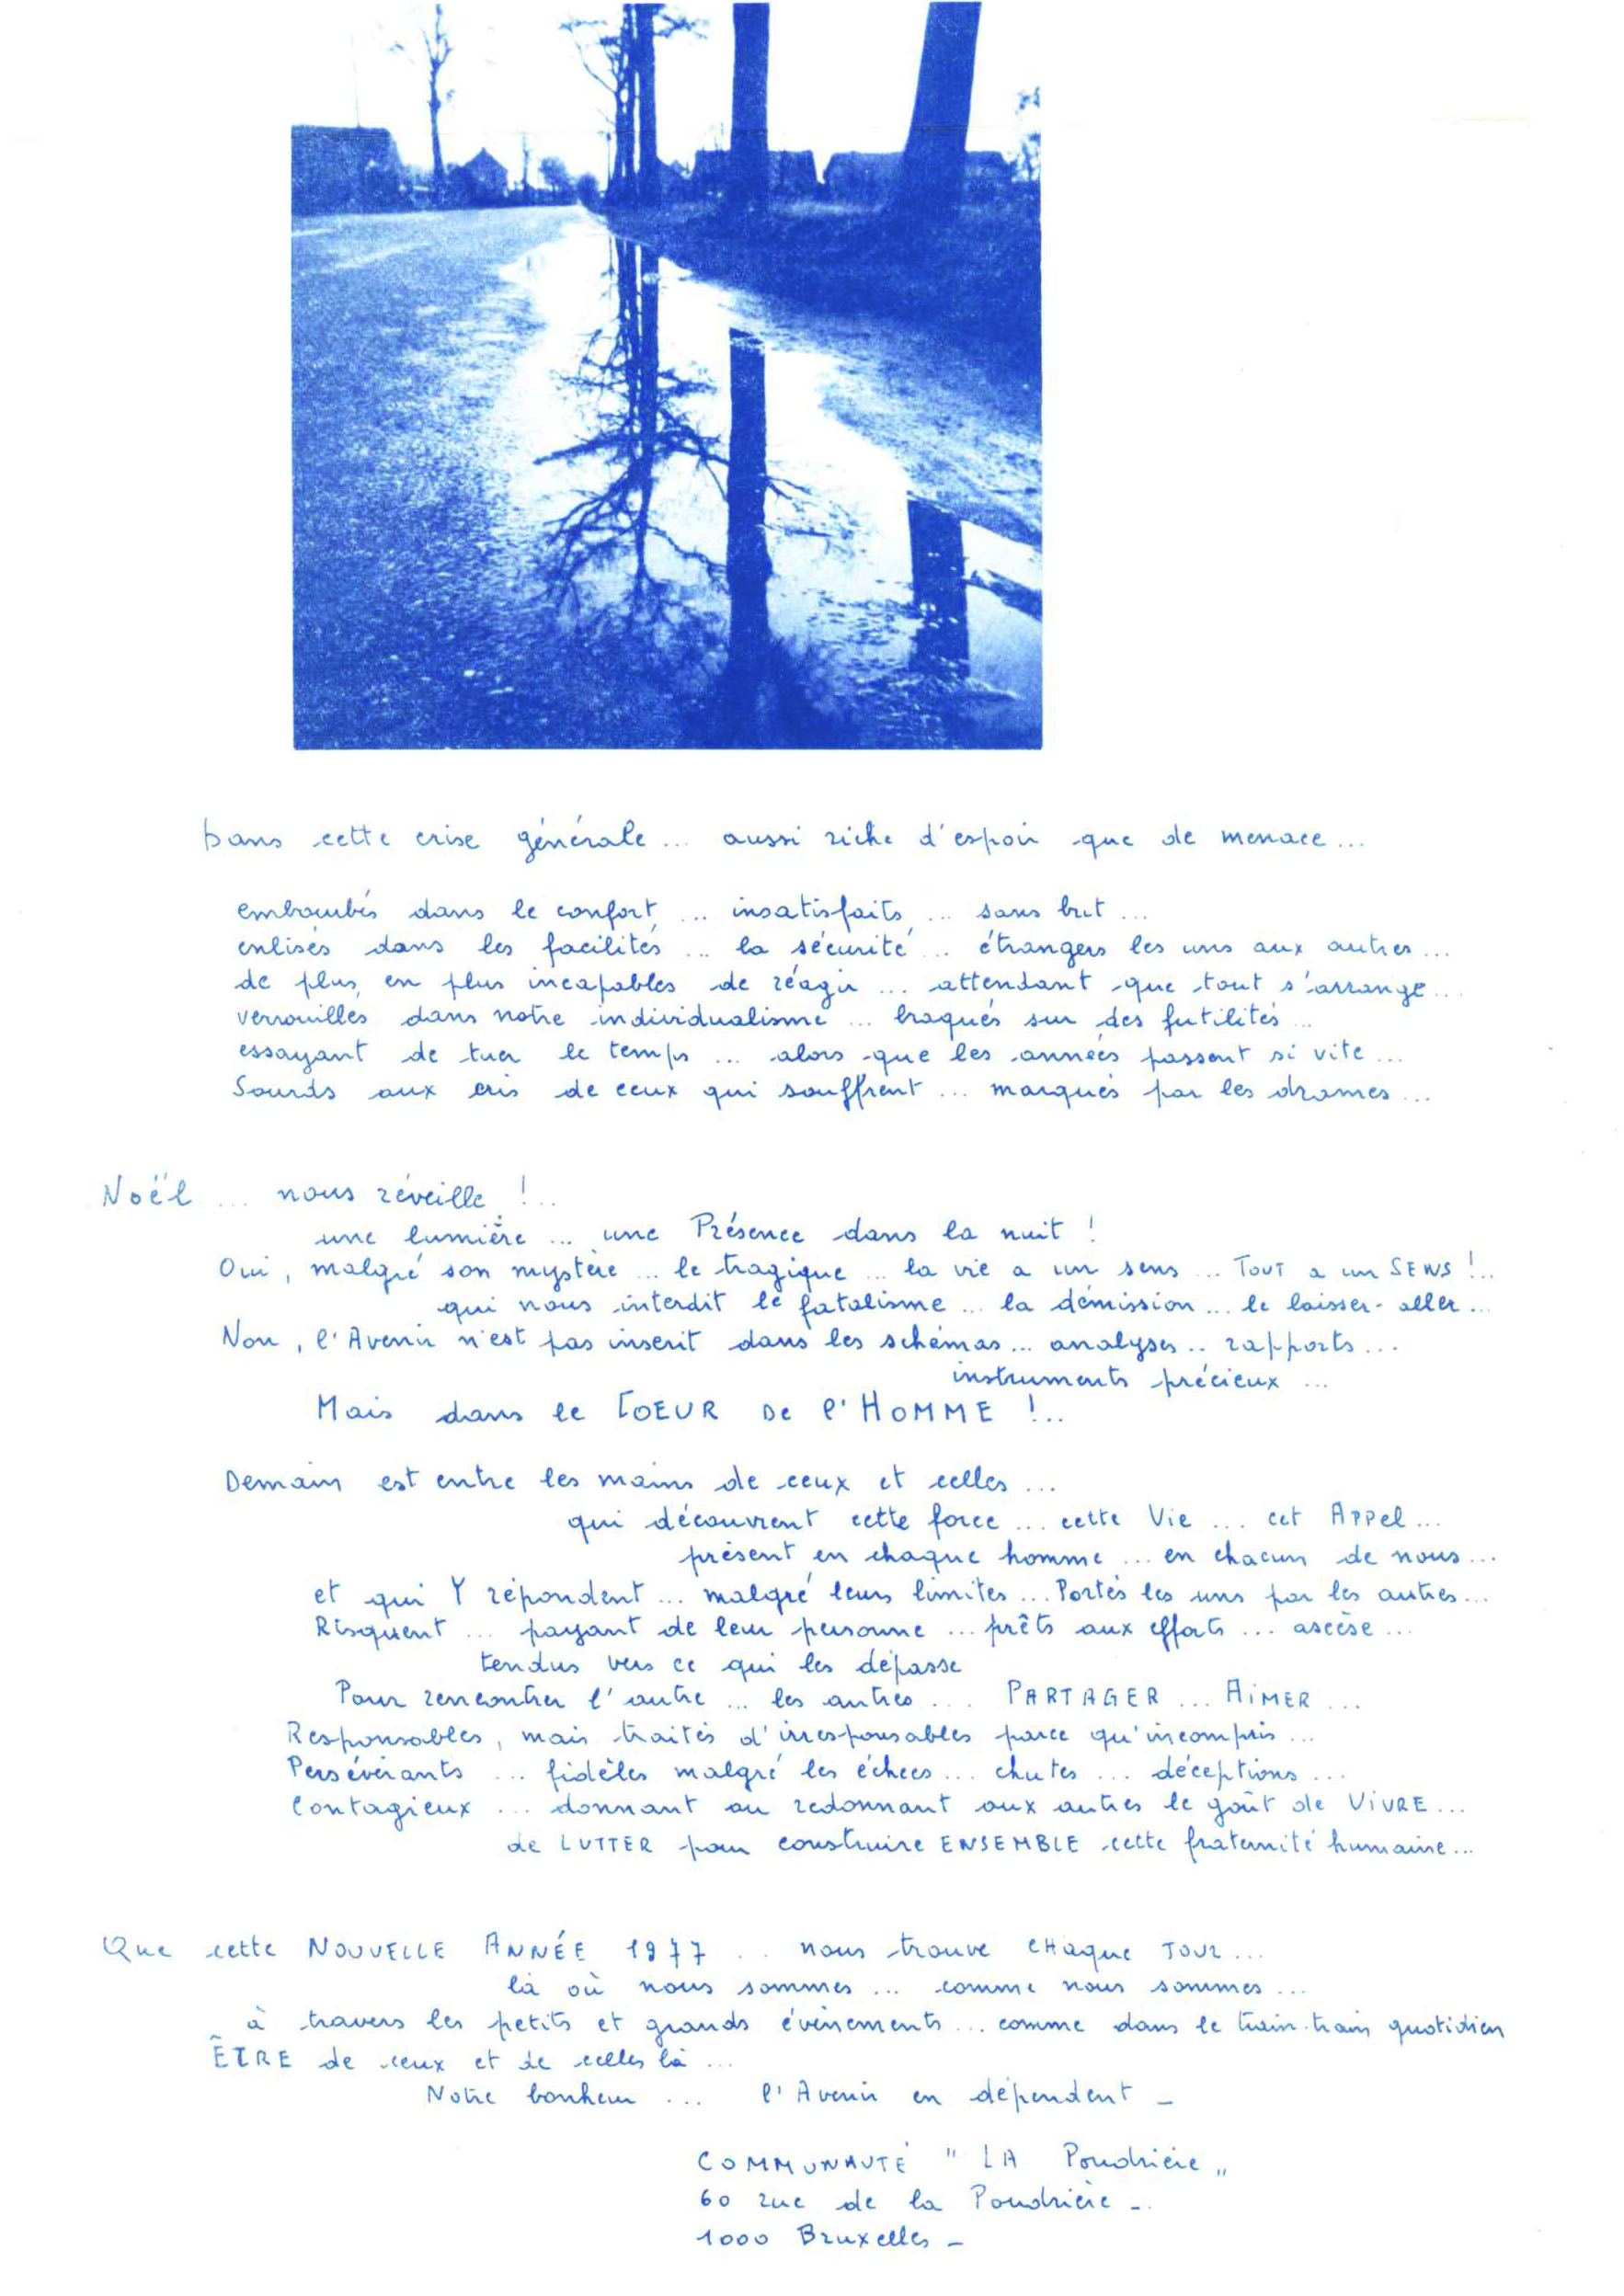 Dans cette crise générale... aussi riche d'espoir que de menace...
embourbés dans le confort... insatisfaits... sans but...
enlisés dans les facilités... la sécurité... étrangers les uns aux autres...
de plus en plus incapables de réagir... attendant que tout s'arrange...
verrouillés dans notre individualisme... braqués sur des futilités...
essayant de tuer le temps... alors que les années passent si vite...
Sourds aux cris de ceux qui souffrent... marqués par les drames...
Noël... nous réveille !..
une lumière... une Présence dans la nuit !
Oui, malgré son mystère... le tragique... la vie a un sens... TOUT a un SENS !..
qui nous interdit le fatalisme... la démission... le laisser-aller...
Non, l'Avenir n'est pas inscrit dans les schémas... analyses.. rapports...
instruments précieux...
Mais dans le COEUR De l'HOMME !..
Demain est entre les mains de ceux et celles...
qui découvrent cette force... cette Vie... cet Appel...
présent en chaque homme... en chacun de nous...
et qui Y répondent... malgré leurs limites... Portés les uns par les autres...
Risquent... payant de leur personne... prêts aux efforts... ascèse...
tendus vers ce qui les dépasse
Pour rencontrer l'autre... les autres... PARTAGER... AIMER...
Responsables, mais traités d'irresponsables parce qu'incompris...
Persévérants... fidèles malgré les échecs... chutes... déceptions...
Contagieux... donnant ou redonnant aux autres le goût de VIVRE...
de LUTTER pour construire ENSEMBLE cette fraternité humaine...
Que cette NOUVELLE ANNÉE 1977... nous trouve CHaque JOUR...
là où nous sommes... comme nous sommes...
à travers les petits et grands évènements... comme dans le train-train quotidien
ÊTRE de ceux et de celles là...
Notre bonheur... l'Avenir en dépendent -
COMMUNAUTÉ "LA Poudrière"
60 rue de la Poudrière -.
1000 Bruxelles -